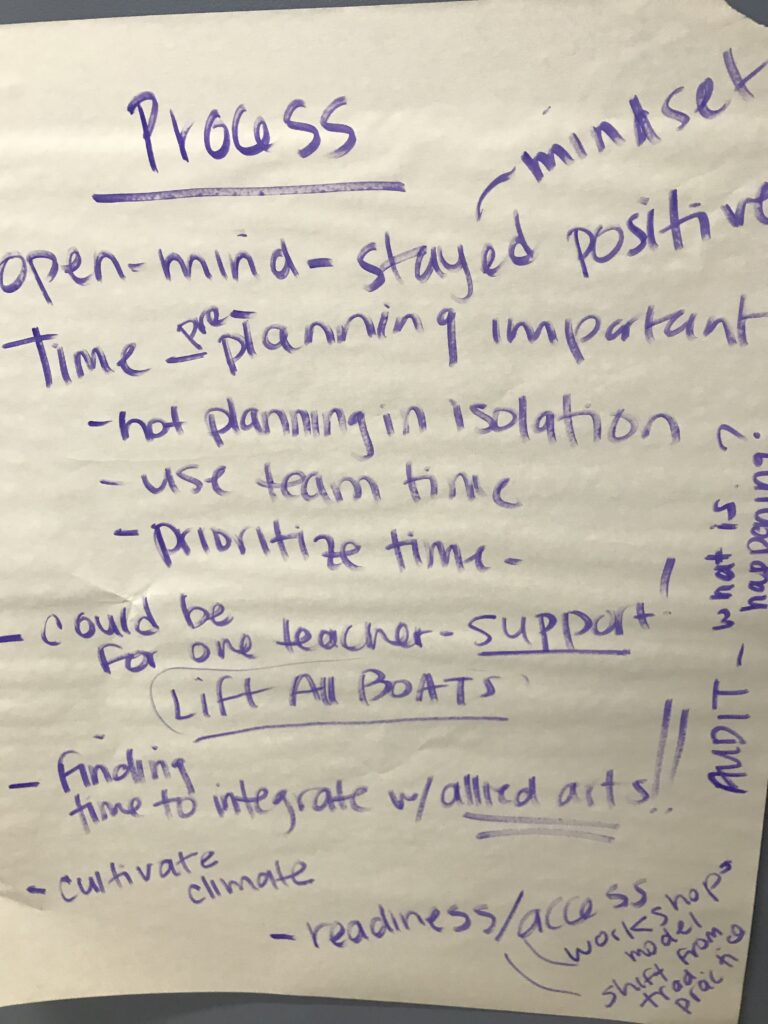 Process
mindset
open-mind - stayed positive
Time - pre-planning important
- not planning in isolation
- use team time
- prioritize time -
- could be
for one teacher - support!
Lift All BOATS
- finding
time to integrate w/ allied arts!!
- cultivate
climate
- readiness/access
workshop
model
shift from
trad
practice
AUDIT - what is
happening?